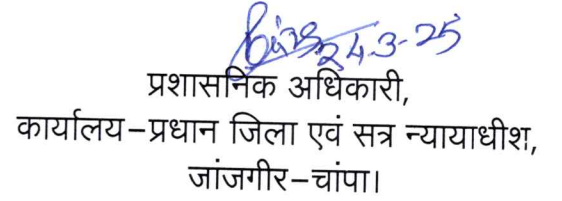 24.3-25
प्रशासनिक अधिकारी,
कार्यालय-प्रधान जिला एवं सत्र न्यायाधीश,
जांजगीर-चांपा।